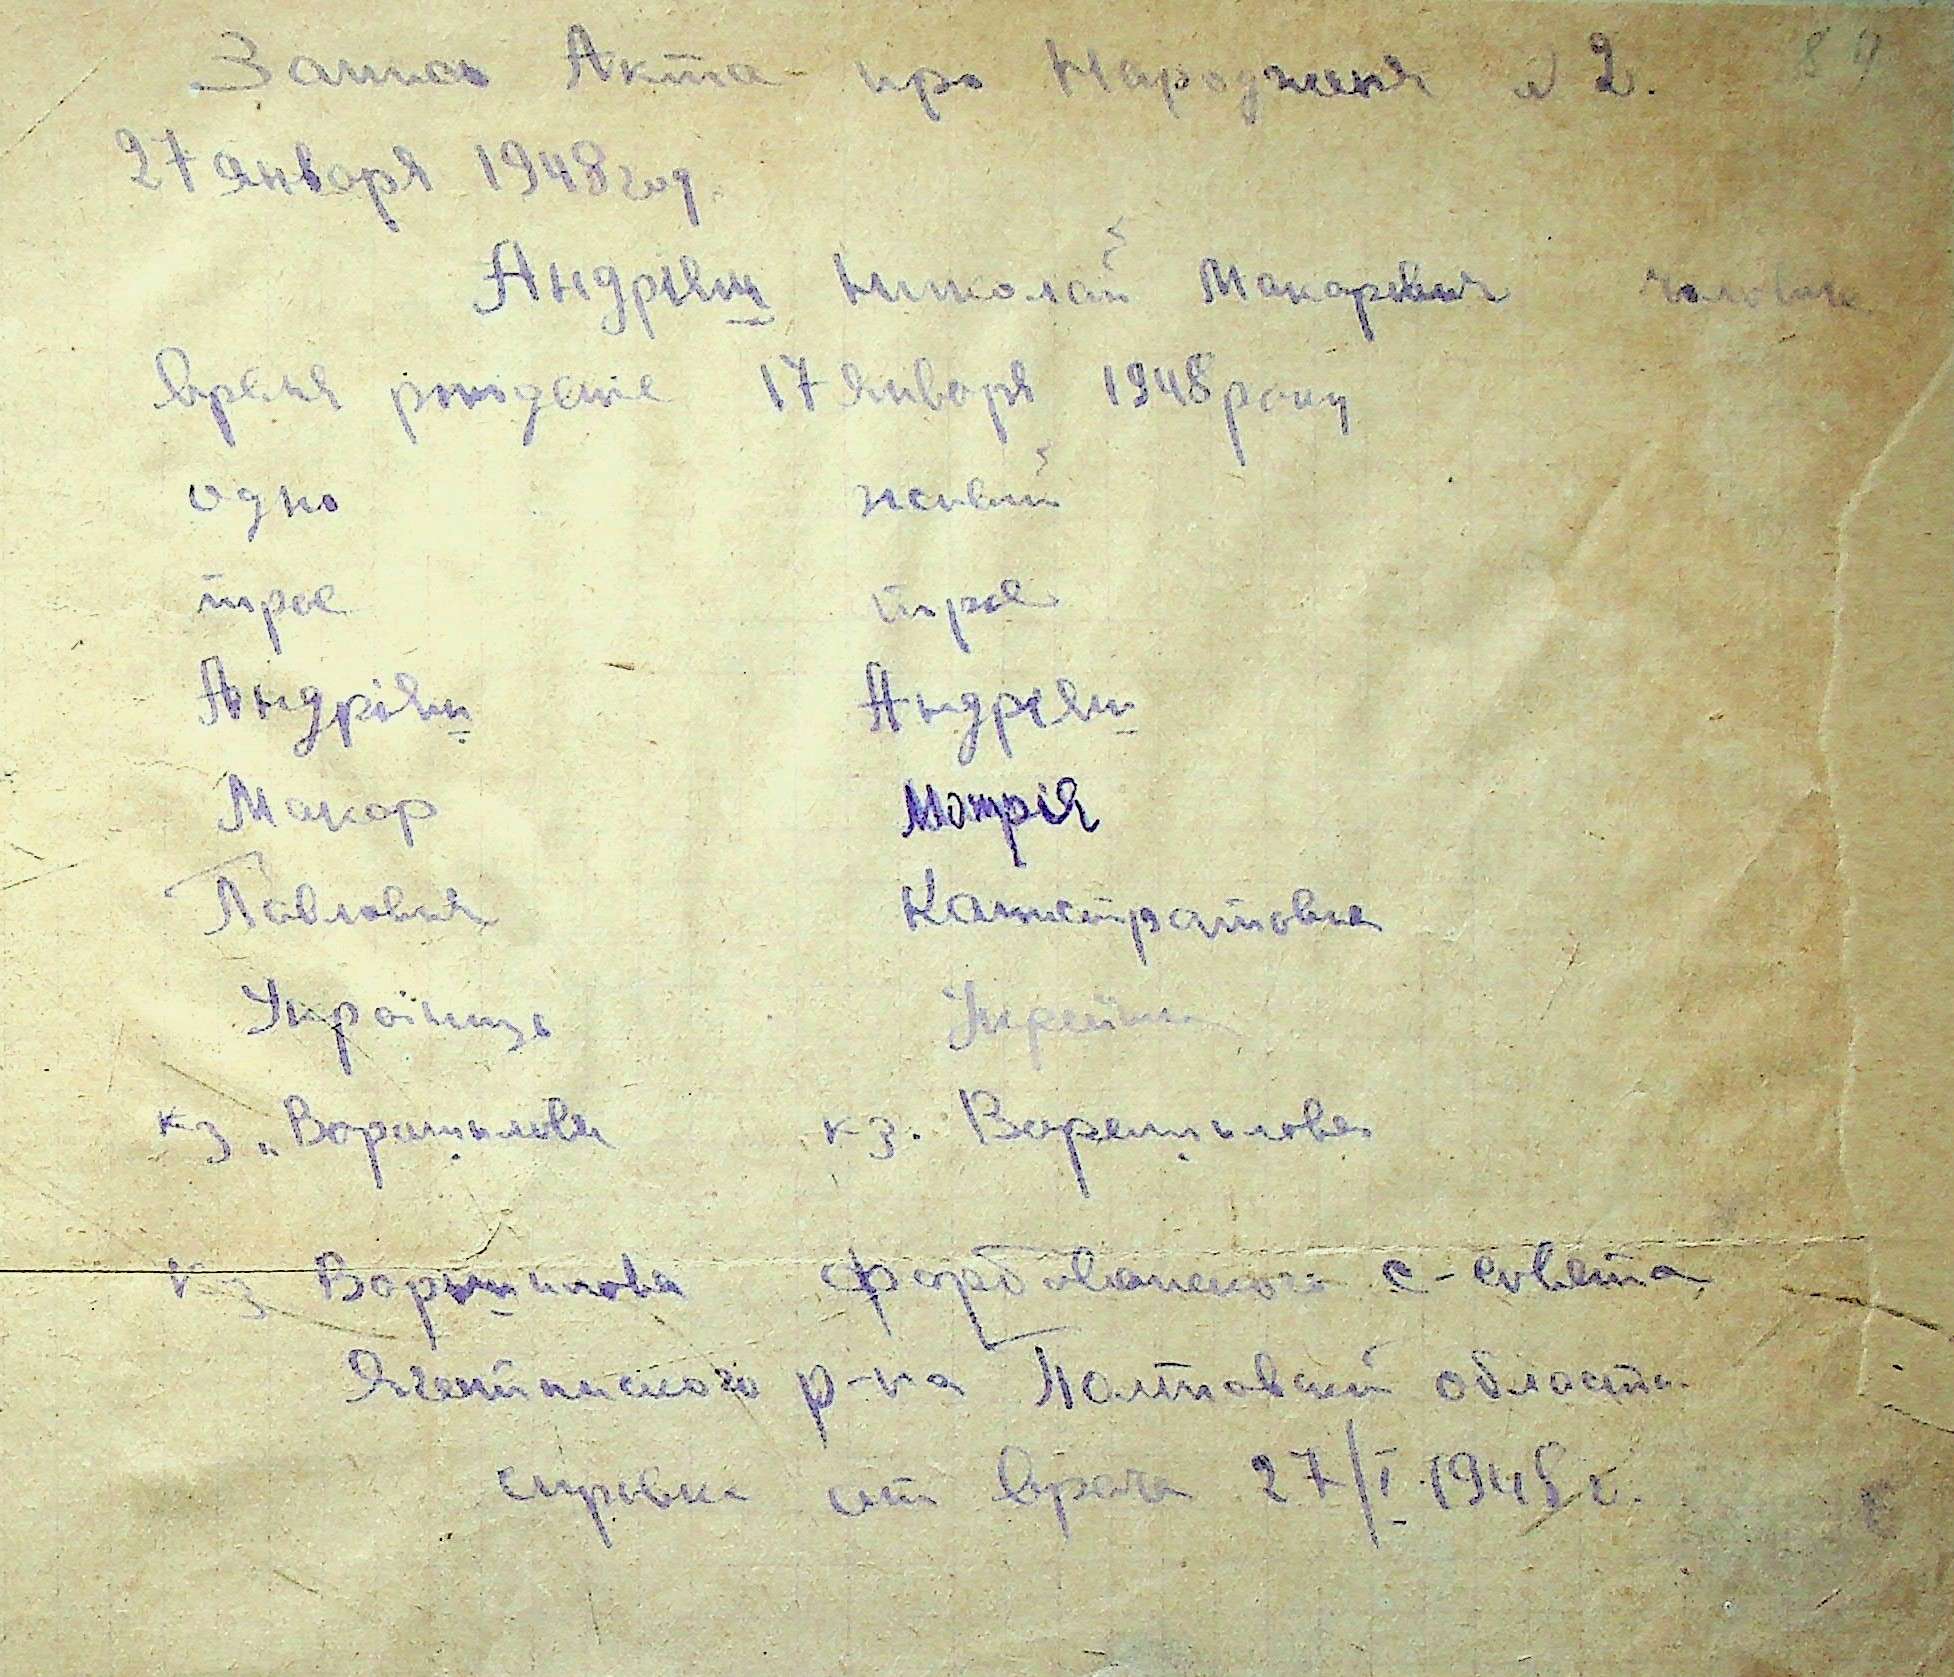 Запись Акта про Народженя № 2. 84
27 Января 1948 год.
Андріяш Николай Макарович чоловік
Время рождение 17 Января 1948 року
одно живий
трое трое
Андріяш Андріяш
Макар Мотрія
Павлович Калистратовна
Українець Українка
кз „Ворошилова кз. Ворошилова
кз Ворошилова с-совета
р-на Полтавский области
справка от врача 27/I 1948 г.